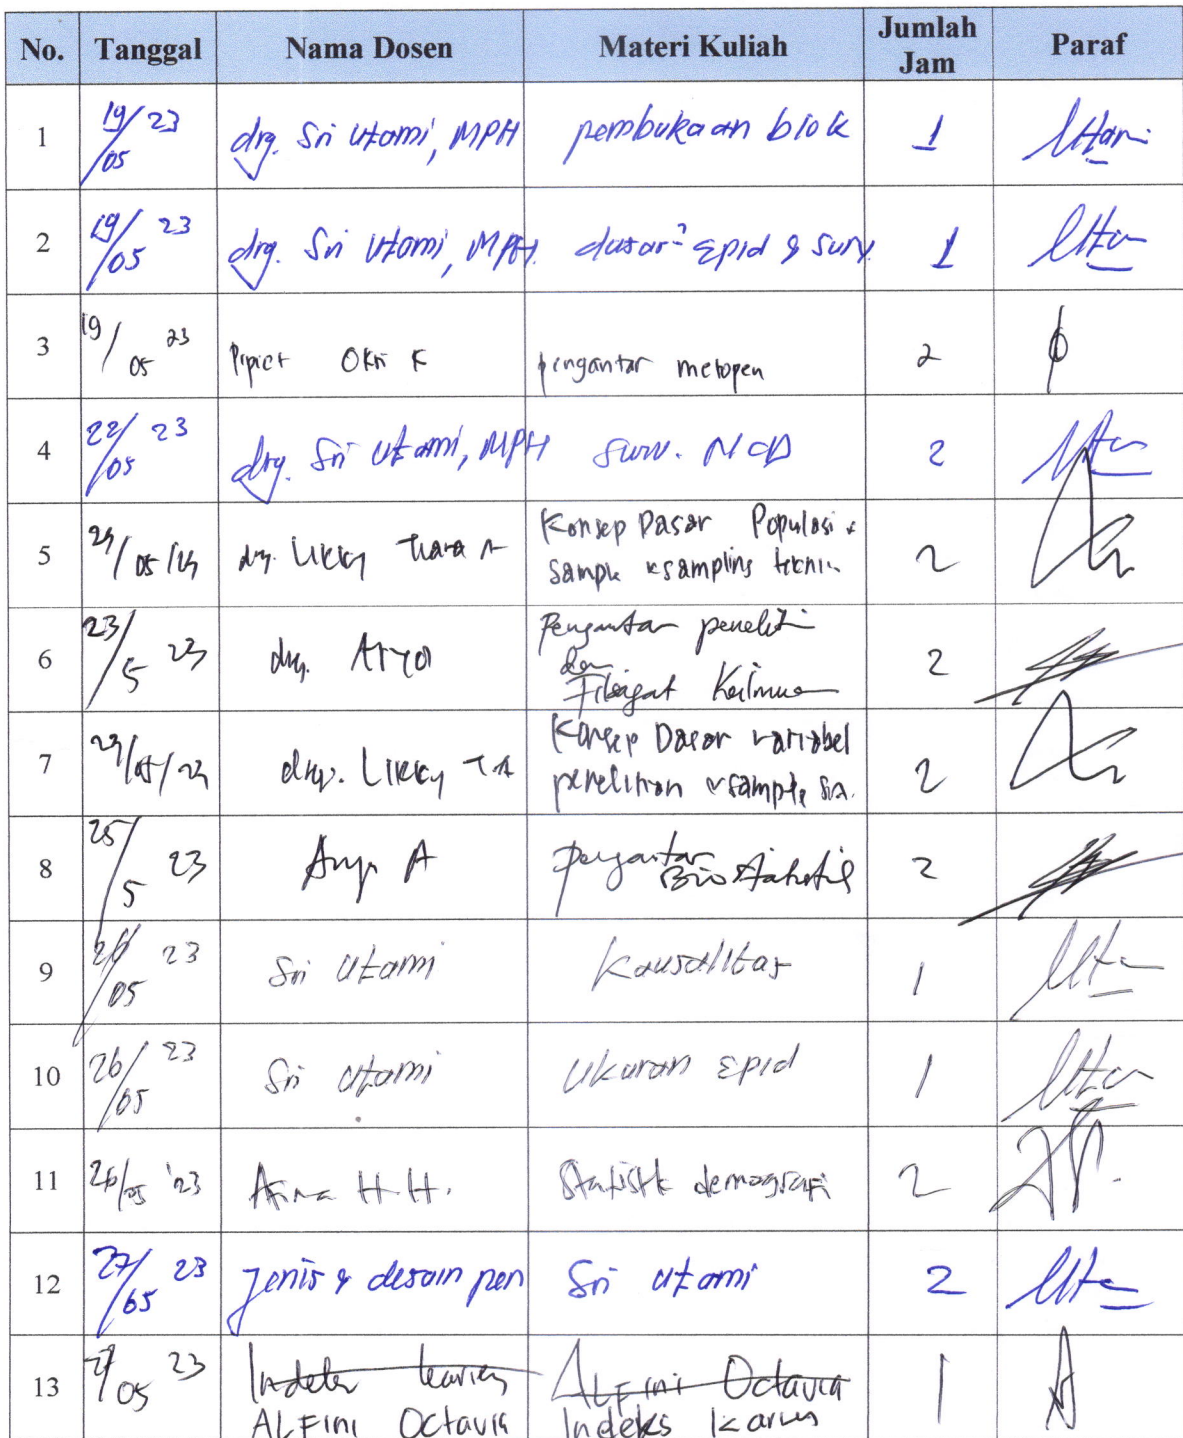 No. Tanggal Nama Dosen Materi Kuliah Jumlah Jam Paraf
1 19/05 23 drg. Sri Utami, MPH pembukaan blok 1 Utami
2 19/05 23 drg. Sri Utami, MPH. dasar² Epid & Surv. 1
3 19/05 23 Pipiet Okti K pengantar metopen 2
4 22/05 23 drg. Sri Utami, MPH Surv. NCD 2
5 drg. Likky Tiara A Konsep Dasar Populasi &
sample & sampling teknik 2
6 23/5 23 drg. Aryo Pengantar peneliti
dan
Filsafat Keilmuan 2
7 drg. Likky T.A Konsep Dasar variabel
penelitian & sample 2
8 25/5 23 A Pengantar
Biostatistik 2
9 26/05 23 Sri Utami Kausalitas 1
10 26/05 23 Sri Utami Ukuran Epid 1
11 26/05 '23 H.H. Statistk demografi 2
12 27/05 23 Jenis & desain pen Sri Utami 2
13 27/05 23 Indeks karies Alfini Octavia 1
ALFini Octavia Indeks Karies